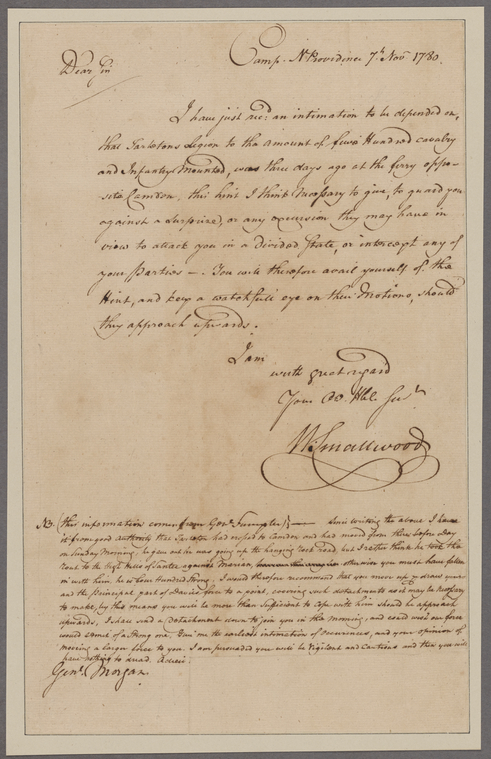 Camp N. Providence 7th Novr 1780.
Dear Sir
I have just recd an intimation to be depended on,
that Tarletons Legion to the amount of Hundred cavalry
and Infantry Mounted, was three days ago at the ferry oppo-
site Camden, this hint I think necessary to give, to guard you
against a Surprize, or any excursion they may have in
view to attack you in a divided State, or intercept any of
your Parties —. You will therefore avail yourself of the
Hint, and keep a watchfull eye on their Motions, should
they approach upwards.
I am
with great regard
Your Ob. Hble Servt
W. Smallwood
NB. (this information comes from Genl. Sumpter) — Since writing the above I have
it from good authority that Tarleton had crossed to Camden and had moved from there before Day
on Sunday Morning, he gave out he was going up the hanging rock road, but I rather think he took the
rout to the high Hills of Santee against Marian, otherwise you must have fallen
in with him, he is four Hundred strong, I would therefore recommend that you move up & draw your
and the Principal part of Davies force to a point, covering such detachments as it may be necessary
to make, by this means you will be more than Sufficient to Cope with him should he approach
upwards, I shall send a Detachment down to join you in the morning, and could wish our force
would admit of a strong one. Give me the earliest intimation of occurences, and your opinion of
moving a larger force to you. I am persuaded you will be Vigilant and Cautious and then you will
have nothing to dread. Adieu
Genl. Morgan.